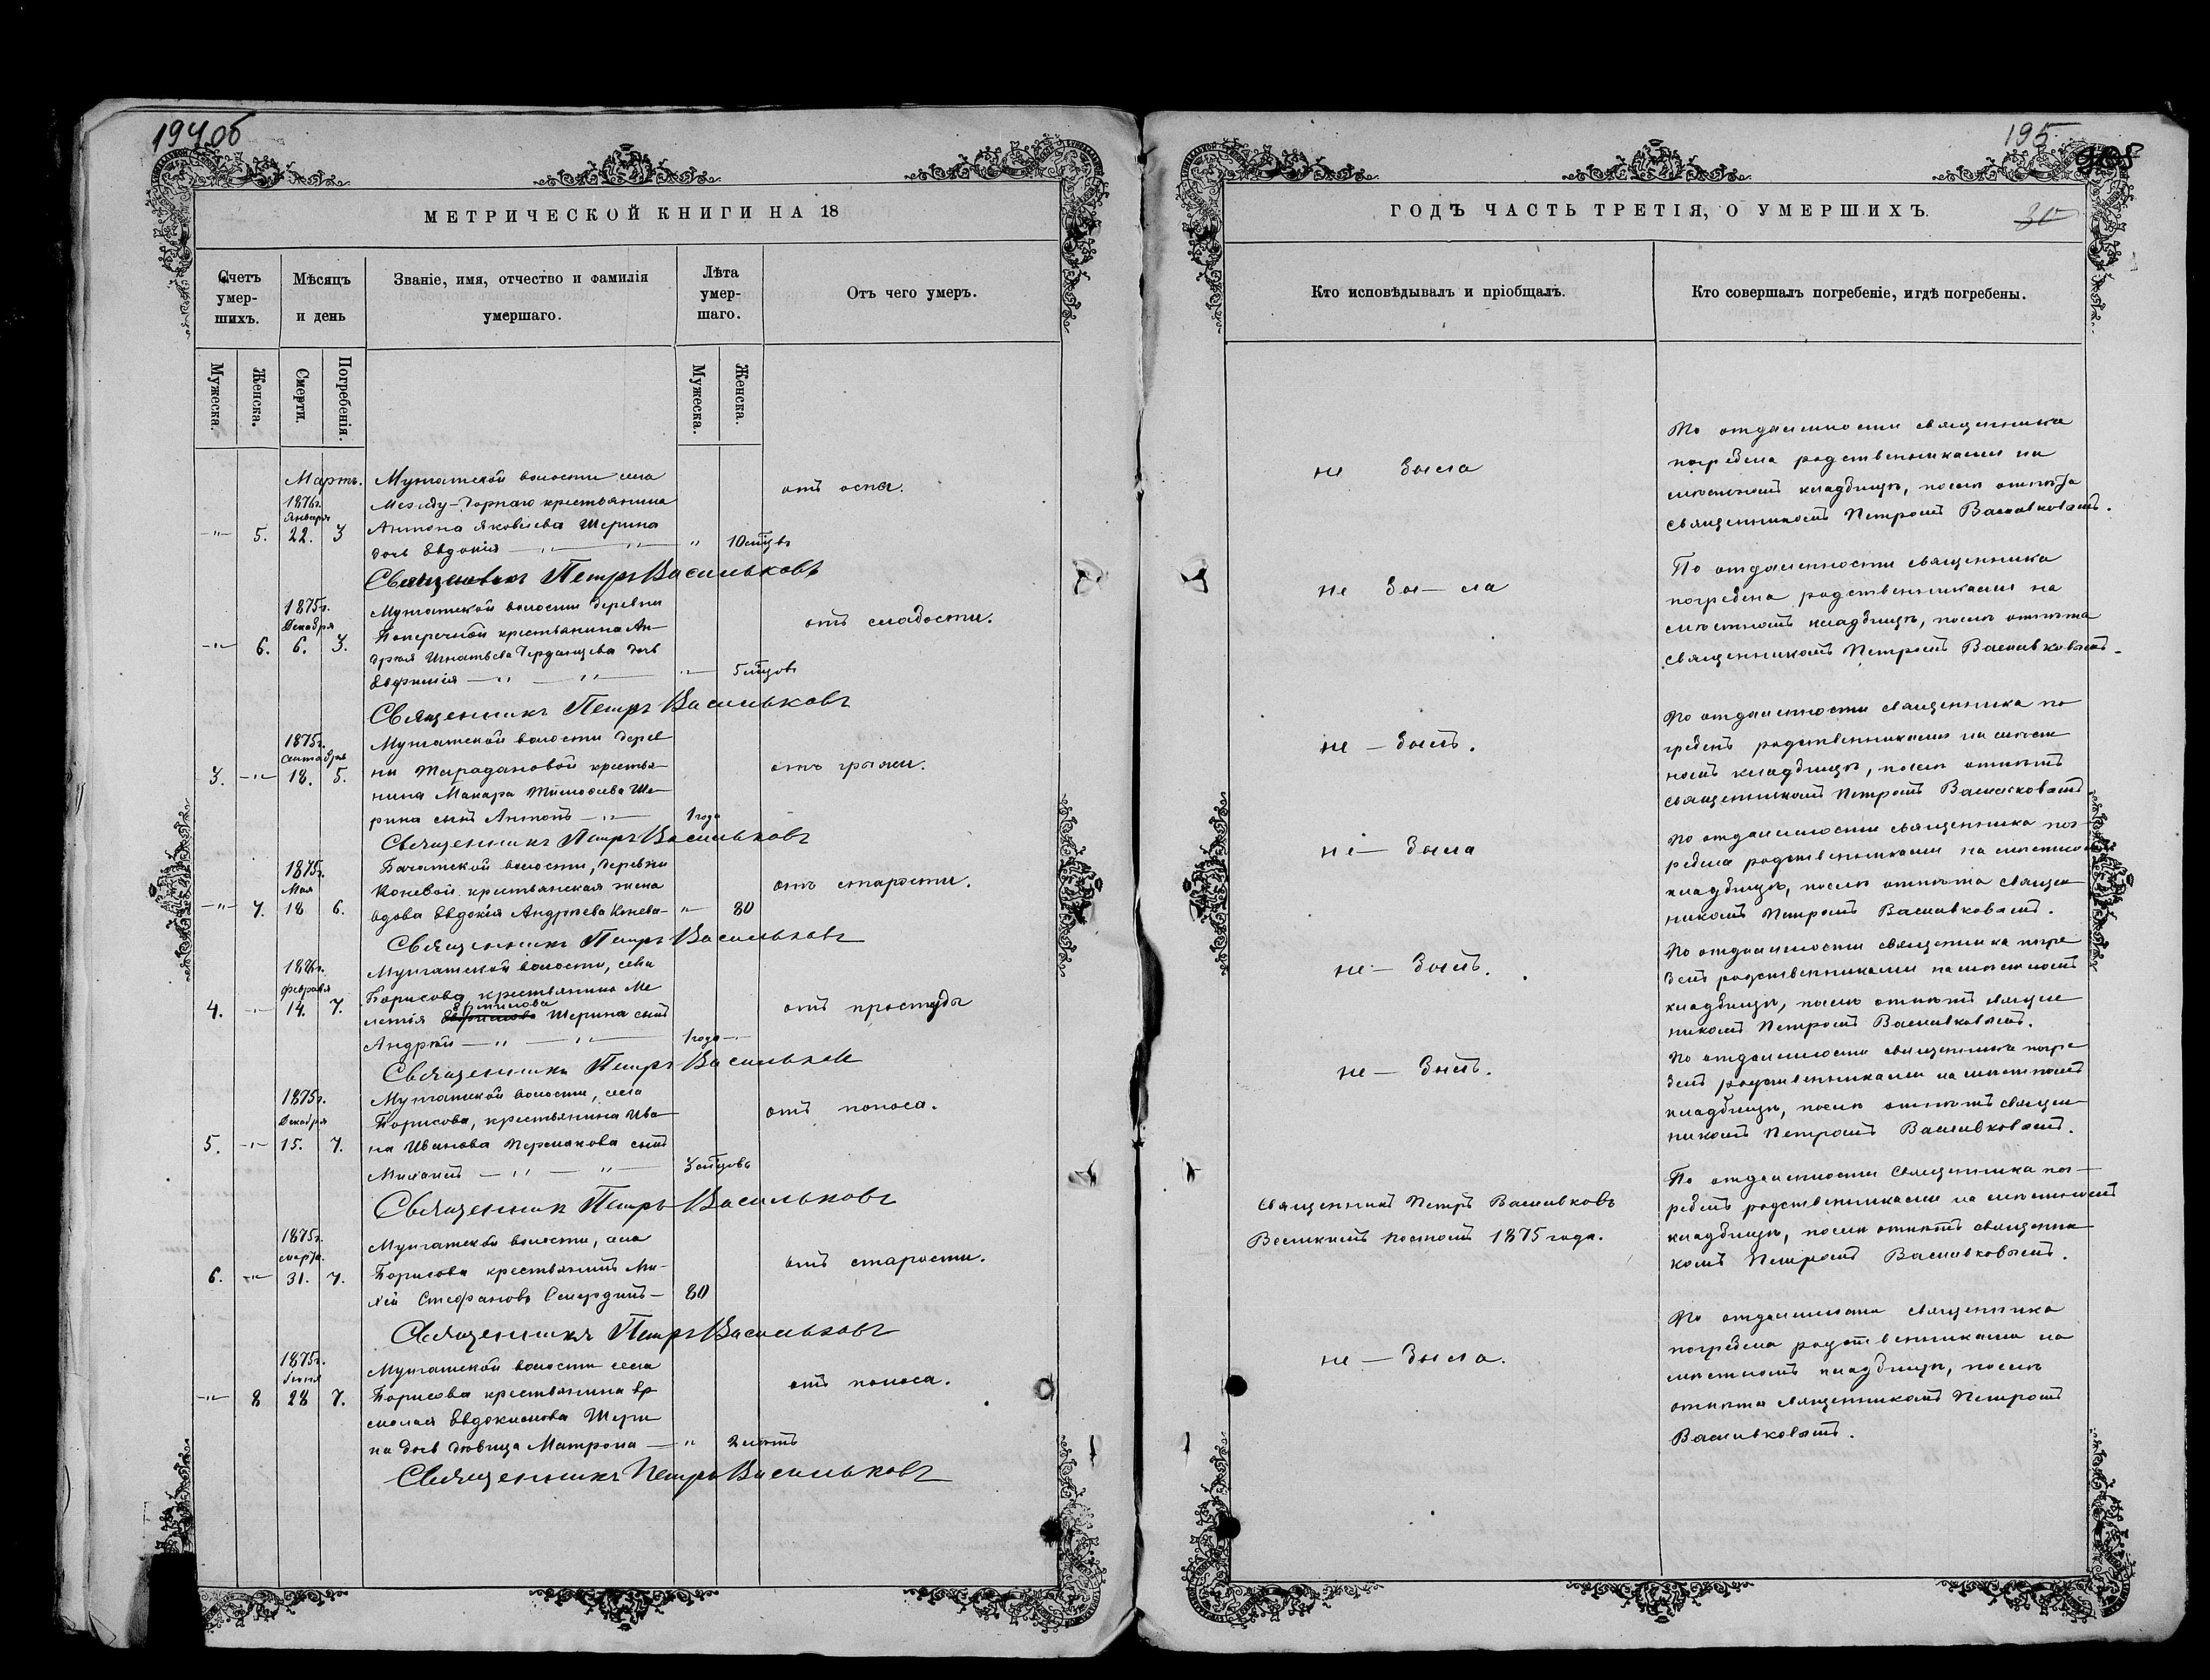 194об
МЕТРИЧЕСКОЙ КНИГИ НА 18
Счетъ умер-шихъ.
Мѣсяцъ и день
Званіе, имя, отчество и фамилія умершаго.
Лѣта умер-шаго.
Отъ чего умеръ.
Мужеска.
Женска.
Смерти.
Погребенія.
Мужеска.
Женска.
Мартъ.
1876г.
Января
-"- 5. 22. 3
Мунгатской волости села
Между-Горнаго крестьянина
Антона Яковлева Шерина
дочь Евдокія — " — " —
" 10 мцвъ
отъ оспы.
Священникъ Петръ Васильковъ
1875г.
Декабря
-"- 6. 6. 3.
Мунгатской волости деревни
Поперечной крестьянина Ан-
дрея Игнатьева Гордѣцева дочь
Евфимія — " — " —
-"- 5 мцовъ
отъ слабости.
Священникъ Петръ Васильковъ
1875г.
Сентября
3. -"- 18. 5.
Мунгатской волости дерев
ни Тарадановой крестья-
нина Макара Тимофеева Ше-
рина сынъ Антонъ — " —
1 года
отъ грыжи.
Священникъ Петръ Васильковъ
1875г.
Мая
-"- 7. 18 6.
Бачатской волости, деревни
Коневой крестьянская жена
вдова Евдокія Андреева Конева-
-"- 80
отъ старости.
Священникъ Петръ Васильковъ
1876г.
Февраля
4. -"- 14. 7.
Мунгатской волости, села
Борисова крестьянина Ме
летія Шерина сынъ
Андрей — " — " —
1 года -"-
отъ простуды
Священникъ Петръ Васильков
1875г.
Декабря
5. -"- 15. 7.
Мунгатской волости, села
Борисова, крестьянина Ива-
на Иванова Пермякова сынъ
Михаилъ — " — " —
3 мцовъ
отъ поноса.
Священник Петръ Васильковъ
1875г.
марта.
6. -"- 31. 7.
Мунгатской волости, села
Борисова крестьянинъ Ми-
хей Стефановъ Смердинъ-
80
отъ старости.
Священникъ Петръ Васильковъ
1875г.
Іюня
-"- 8 28 7.
Мунгатской волости села
Борисова крестьянина Ер
молая Евдокимова Шери
на дочь дѣвица Матрона —
" 2 лѣтъ
отъ поноса.
Священникъ Петръ Васильковъ
195
ГОДЪ ЧАСТЬ ТРЕТІЯ, О УМЕРШИХЪ.
Кто исповѣдывалъ и пріобщалъ.
Кто совершалъ погребеніе, и гдѣ погребены.
не была
По отдаленности священника
погребена родственниками на
мѣстномъ кладбищѣ, послѣ отпѣта
священникомъ Петромъ Васильковымъ.
не бы-ла
По отдаленности священника
погребена родственниками на
мѣстномъ кладбищѣ, послѣ отпѣта
священникомъ Петромъ Васильковымъ.
не - былъ.
По отдаленности священника по
гребенъ родственниками на мѣст
номъ кладбищѣ, послѣ отпѣтъ
священникомъ Петромъ Васильковымъ
не - была
По отдаленности священника пог-
ребена родственниками на мѣстном
кладбищѣ, послѣ отпѣта священ-
никомъ Петромъ Васильковымъ.
не - былъ.
По отдаленности священника погре
бенъ родственниками на мѣстномъ
кладбищѣ, послѣ отпѣтъ священ
никомъ Петромъ Васильковымъ.
не - былъ.
По отдаленности священника погре
бенъ родственниками на мѣстномъ
кладбищѣ, послѣ отпѣтъ священ-
никомъ Петромъ Васильковымъ.
Священникъ Петръ Васильковъ
Великимъ постомъ 1875 года.
По отдаленности священника пог-
ребенъ родственниками на мѣстномъ
кладбищѣ, послѣ отпѣтъ священни-
комъ Петромъ Васильковымъ.
не - была.
По отдаленности священника
погребена родственниками на
мѣстномъ кладбищѣ, послѣ
отпѣта священникомъ Петромъ
Васильковымъ.